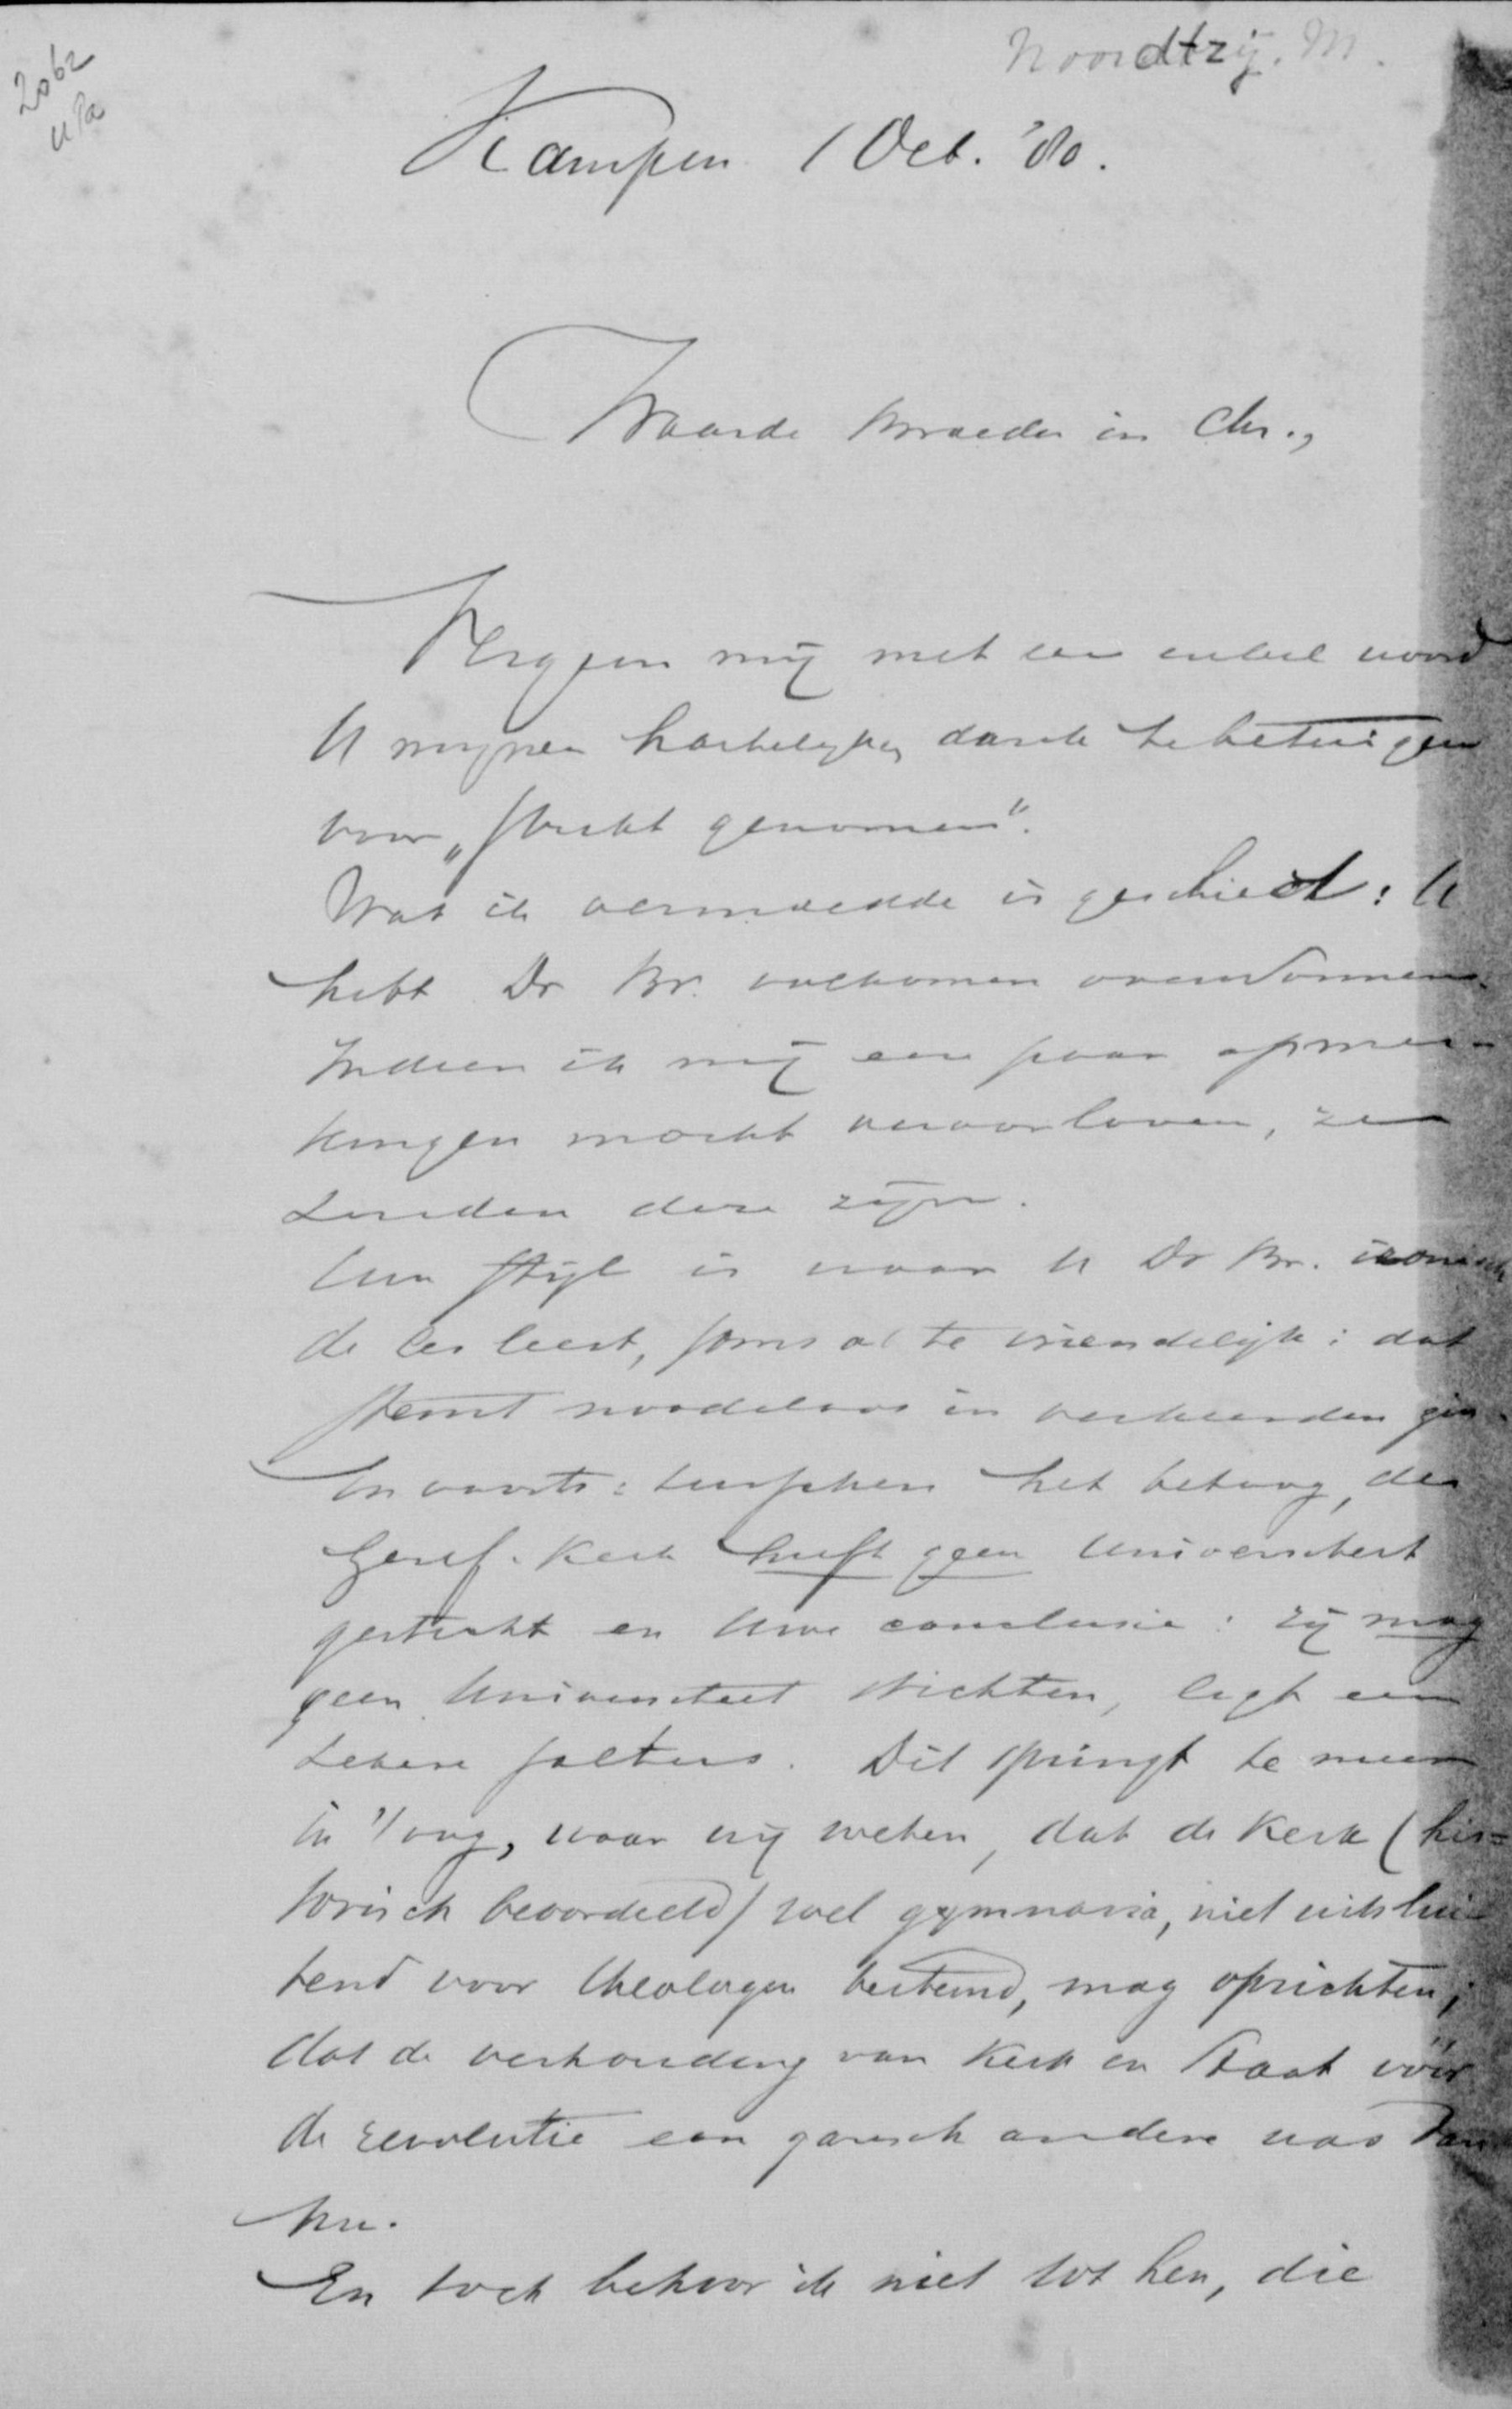 2062
Noordtzij. M.
Kampen 1 Oct. '80.
Waarde broeder in Chr.,
Vergun mij met een enkel woord
U mijnen hartelijken dank te betuigen
voor „Strikt genomen".
Wat ik vermoedde is geschied: U
hebt Dr Br. volkomen overwonnen.
Indien ik mij een paar opmer-
kingen mocht veroorloven, ze
zouden deze zijn.
Uw stijl is waar U Dr Br. ironisch
de les leest, soms al te vriendelijk: dat
stemt noodeloos in verkeerden zin.
En voorts: tusschen het betoog, de
Geref. Kerk heeft geen Universiteit
gesticht en Uwe conclusie: zij mag
geen Universiteit stichten, ligt een
zekere saltus. Dit springt te meer
in 't oog, waar wij weten, dat de Kerk (his=
torisch beoordeeld) wel gymnasia, niet uitslui-
tend voor theologen bestemd, mag oprichten;
dat de verhouding van Kerk en Staat vóór
de revolutie een gansch andere was dan
nu.
En toch behoor ik niet tot hen, die